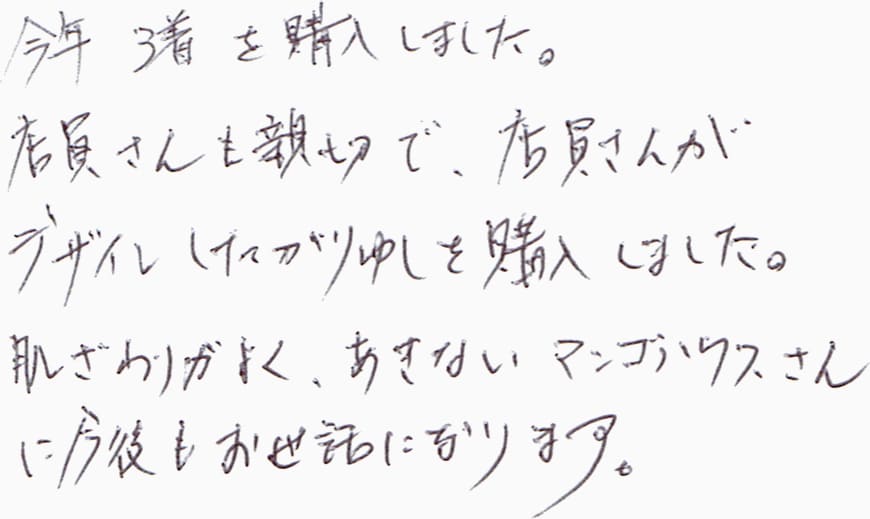 今年 3着 を購入しました。
店員さんも親切で、店員さんが
デザインしたかりゆしを購入しました。
肌ざわりがよく、あきない マンゴハウスさん
に今後もお世話になります。